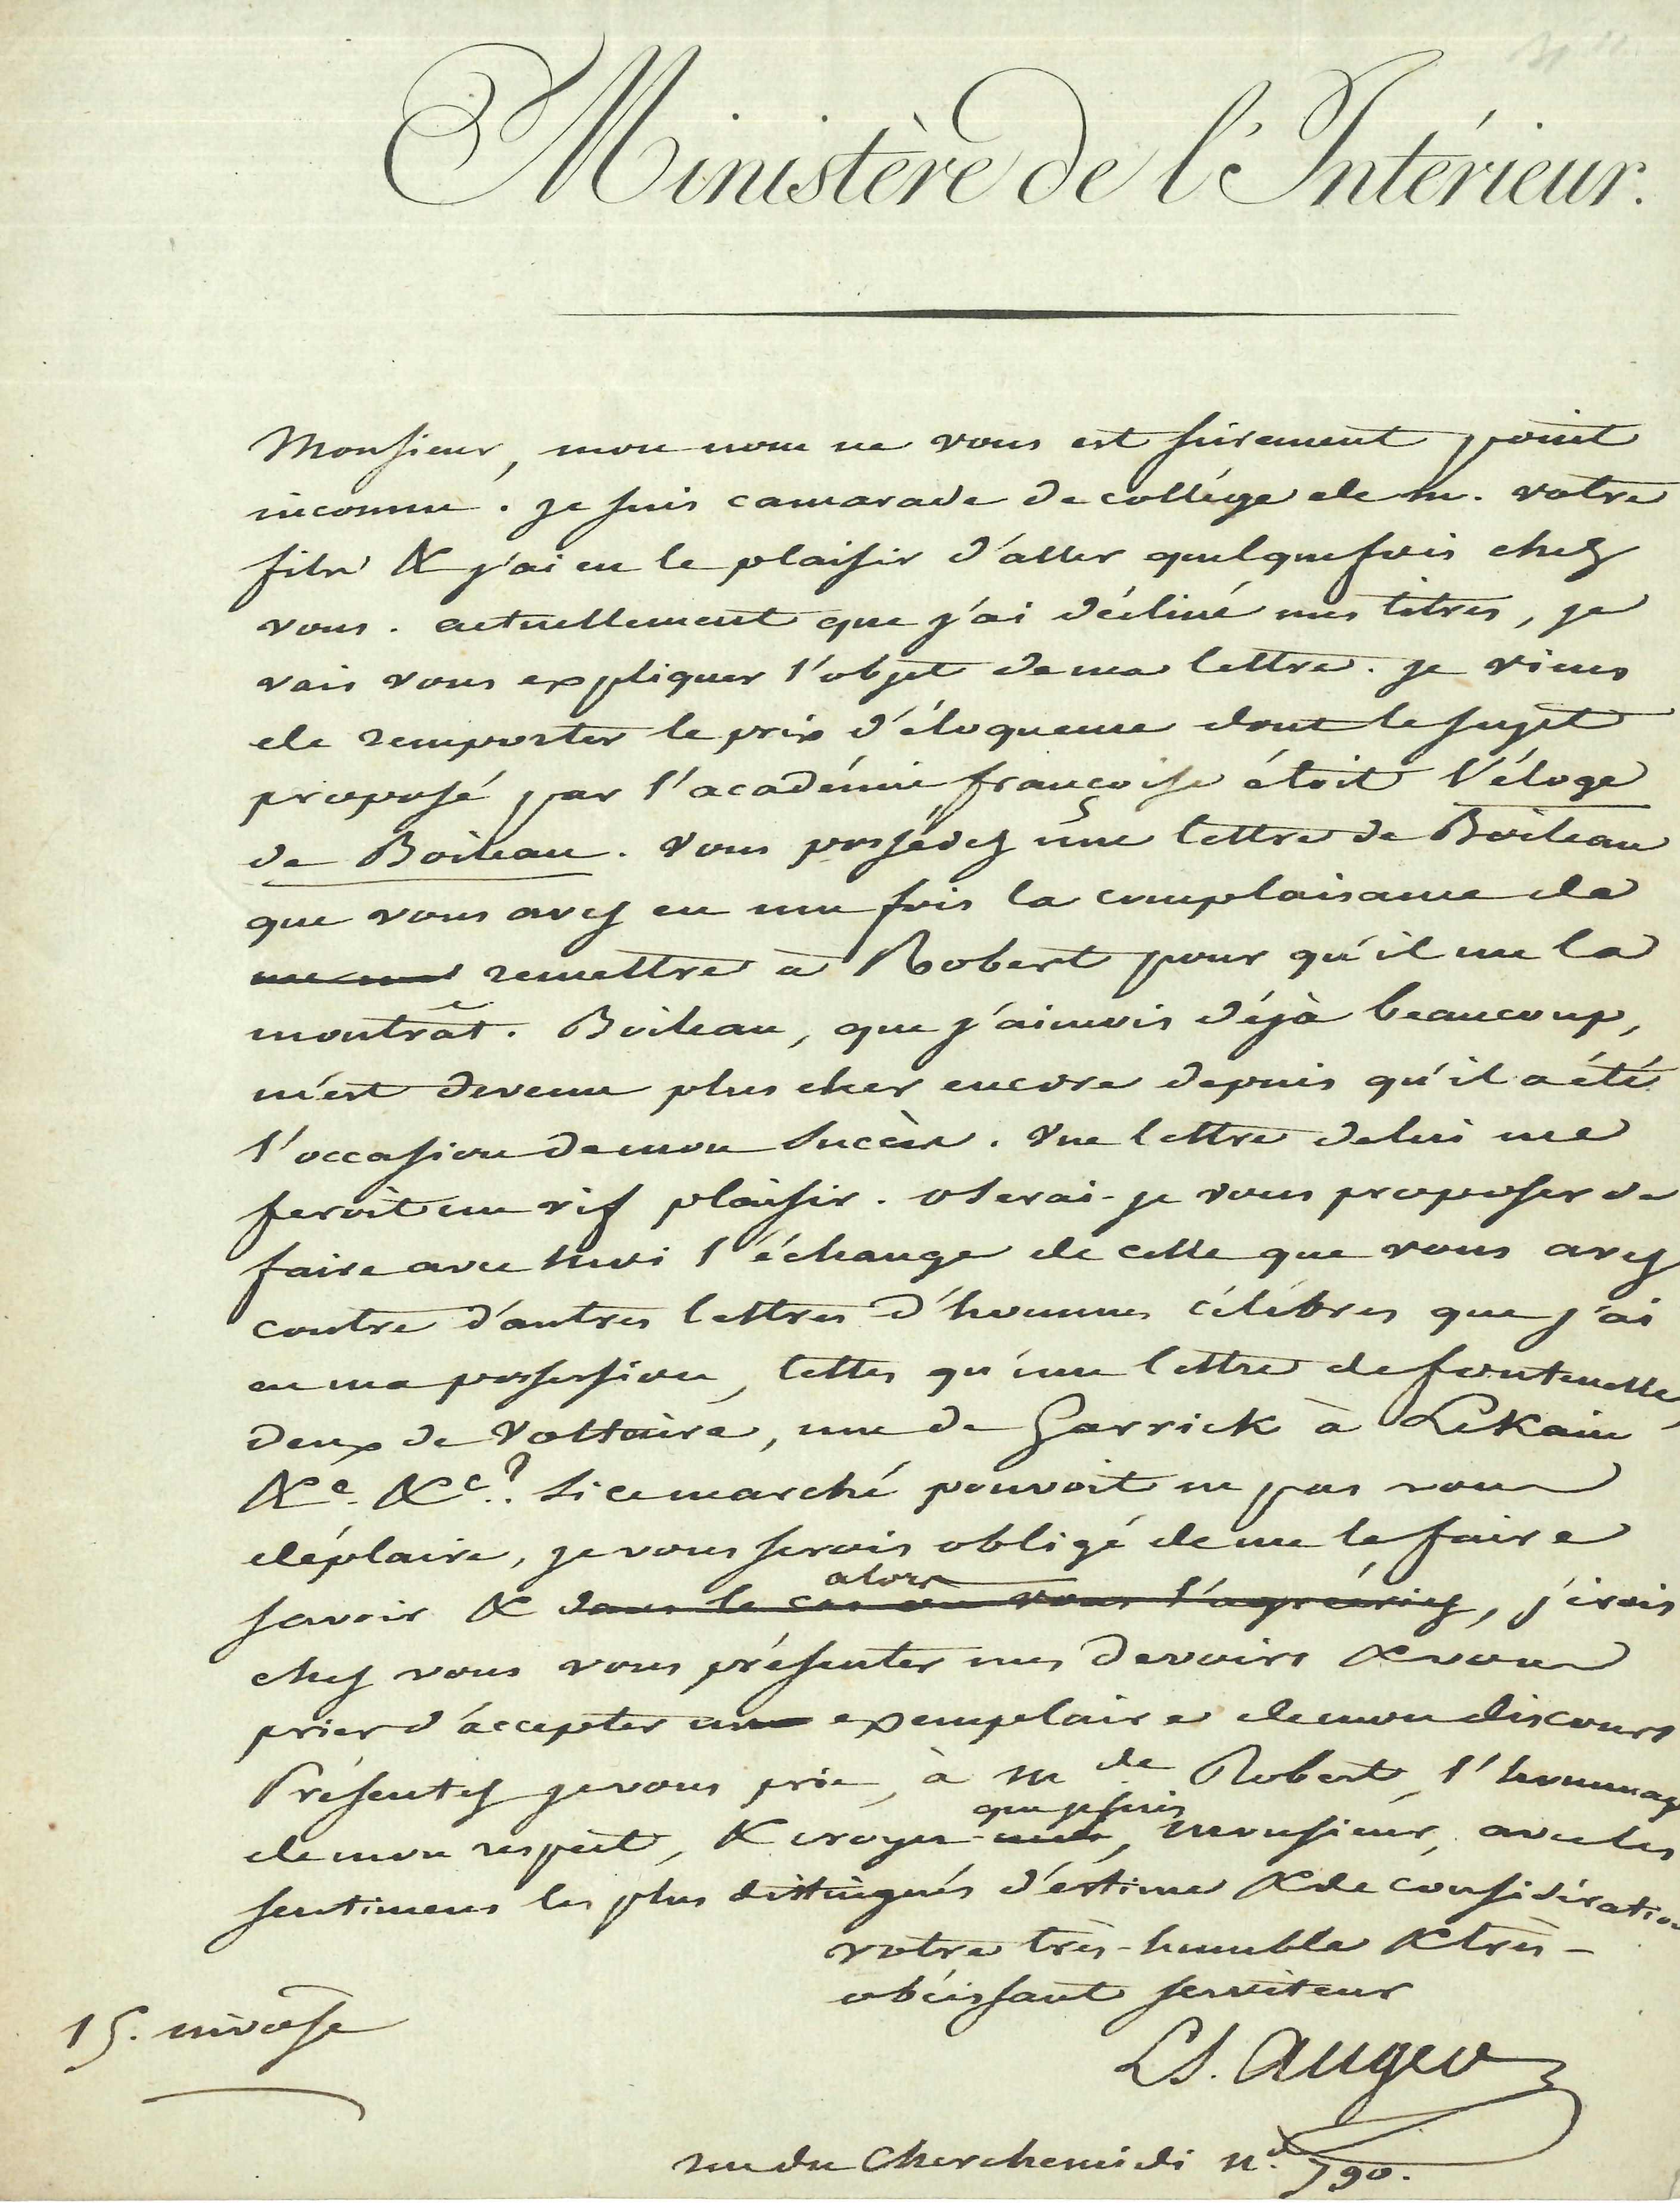 Ministère de l'Intérieur.
Monsieur, mon nom ne vous est surement point
inconnu. je suis camarade de collége de m. votre
fils & j'ai eu le plaisir d'aller quelquefois chez
vous. actuellement que j'ai décliné mes titres, je
vais vous expliquer l'objet de ma lettre. je viens
de remporter le prix d'éloquence dont le sujet
proposé par l'académie françoise étoit l'éloge
de Boileau. Vous possédez une lettre de Boileau
que vous avez eu une fois la complaisance de
remettre à Robert pour qu'il me la
montrât. Boileau, que j'aimois déjà beaucoup,
m'est devenu plus cher encore depuis qu'il a été
l'occasion de mon succès. Une lettre de lui me
feroit un vif plaisir. oserai-je vous proposer de
faire avec moi l'échange de celle que vous avez
contre d'autres lettres d'hommes célèbres que j'ai
en ma possession, telles qu'une lettre de fontenelle,
deux de Voltaire, une de Garrick à LeKain
&c. &c.? Si ce marché pouvoit ne pas vous
déplaire, je vous serois obligé de me le faire
alors
savoir & dans le cas où vous l'agréeriez, j'irois
chez vous vous présenter mes devoirs & vous
prier d'accepter un exemplaire de mon discours
Présentez je vous prie, à mde. Robert, l'hommage
que je suis
de mon respect, & croyez, monsieur, avec les
sentimens les plus distingués d'estime & de considération
votre très-humble & très-
obéissant serviteur
LS. Auger
15. nivose
rue du Cherchemidi no. 790.